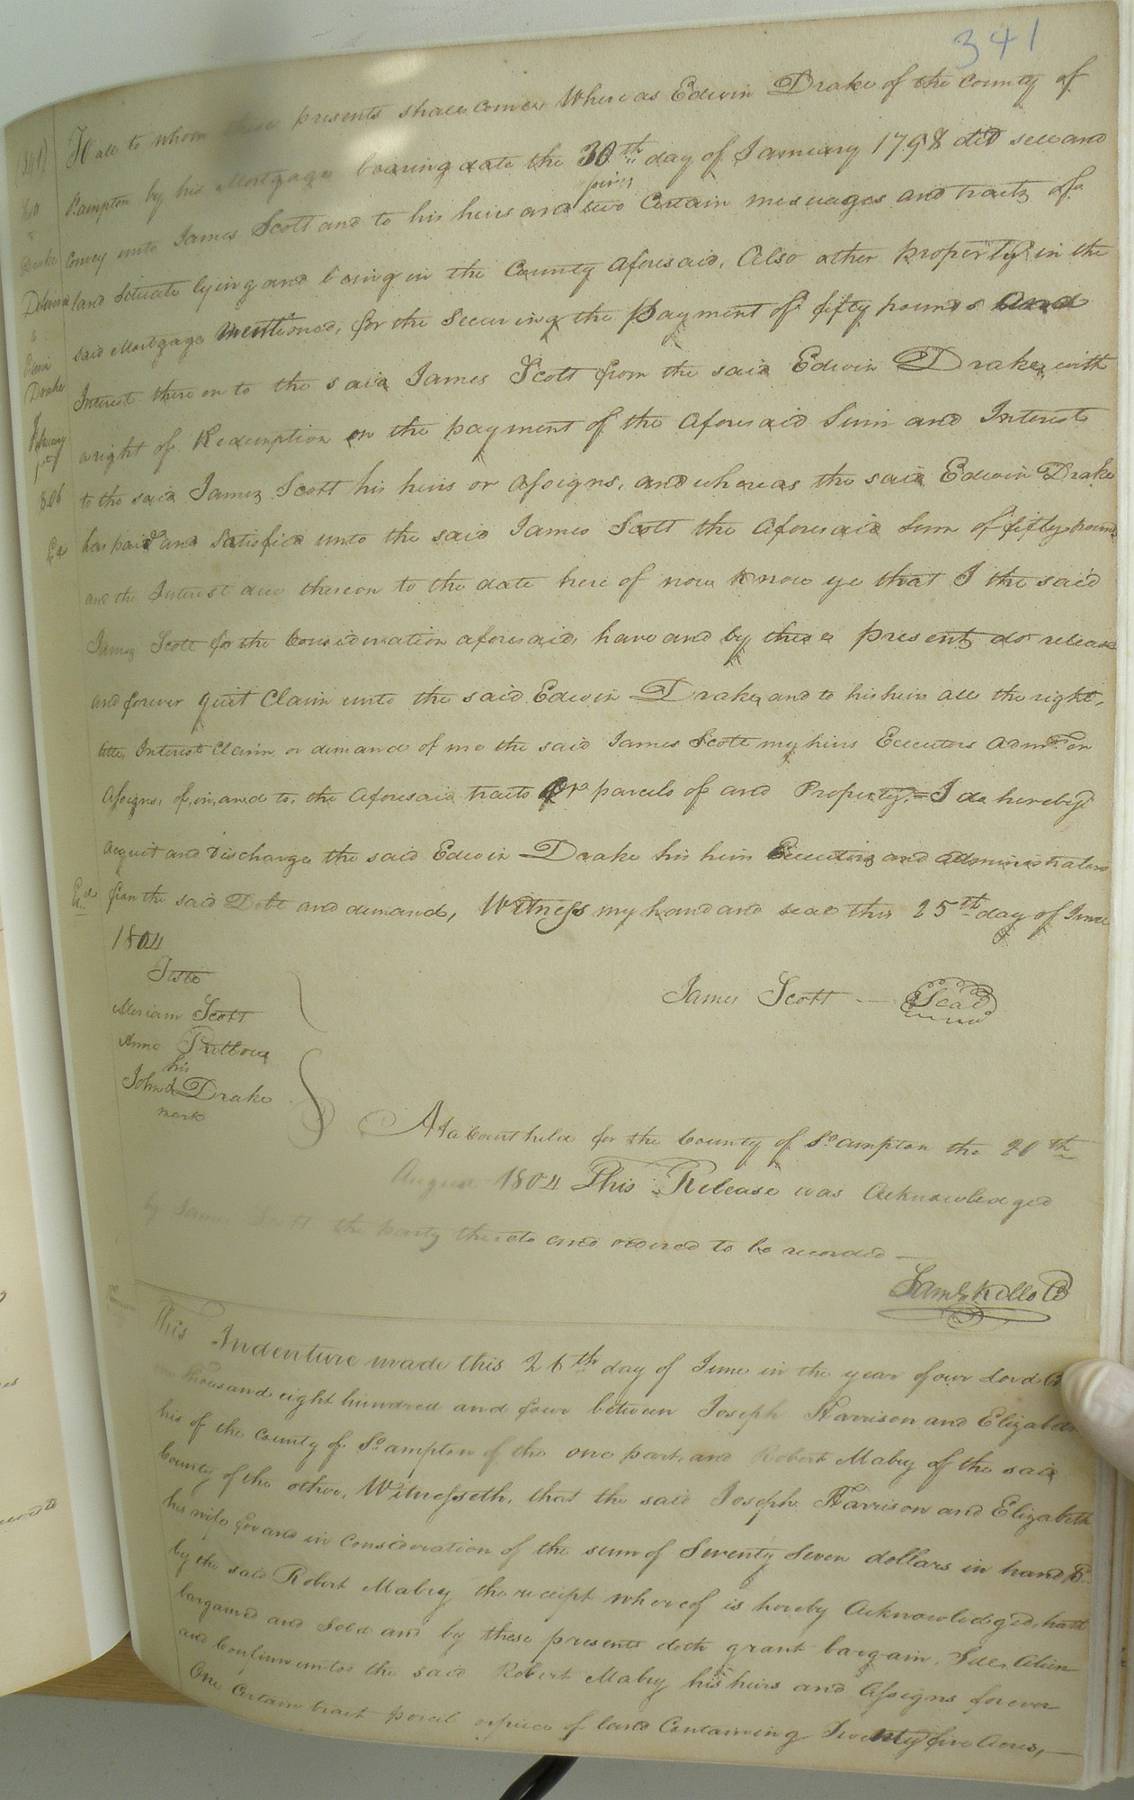 341
To all to whom these presents shall come. Whereas Edwin Drake of the County of
S.ampton by his Mortgage bearing date the 30th day of January 1798 did sell and
Convey unto James Scott and to his heirs and two Certain messuages and tracts of
land Situate lying and being in the County aforesaid, Also other property in the
said Mortgage mentioned, for the Securing the payment of fifty pounds and
Interest there on to the said James Scott from the said Edwin Drake, with
a right of Redemption on the payment of the Aforesaid Sum and Interest
to the said James Scott his heirs or Assigns, and whereas the said Edwin Drake
has paid and Satisfied unto the said James Scott the Aforesaid Sum of fifty pounds
and the Interest due thereon to the date here of now Know ye that I the said
James Scott for the Consideration aforesaid, have and by these present, do release
and forever quit Claim unto the said Edwin Drake, and to his heirs all the right,
title Interest Claim or demand of me the said James Scott my heirs Executors Admrs. or
Assigns, of, in, and to, the Aforesaid tracts Or parcels of and Property. = I do hereby
Acquit and Discharge the said Edwin Drake his heirs Executors and administrators
from the said Debt and demand, Witness my hand and seal this 25th day of June
1804
Teste
Meriam Scott
James Scott — Seal
Anne Pretlow
his
John d Drake
mark
At a Court held for the County of So.ampton the 20th
August 1804 This Release was Acknowledged
by James Scott the party thereto and ordered to be recorded —
Saml. Kello C
This Indenture made this 26th day of June in the year of our Lord
one thousand eight hundred and four between Joseph Harrison and Elizabeth
his of the County of So.ampton of the one part, and Robert Mabry of the said
County of the other, Witnesseth, that the said Joseph Harrison and Elizabeth
his wife for and in Consideration of the sum of Seventy Seven dollars in hand,
by the said Robert Mabry the receipt whereof is hereby Acknowledged, hath
bargained and Sold and by these presents doth grant bargain, Sell, Alien
and Confirm unto the said Robert Mabry his heirs and Assigns forever
One Certain tract parcel or piece of land Containing Twenty five Acres, —